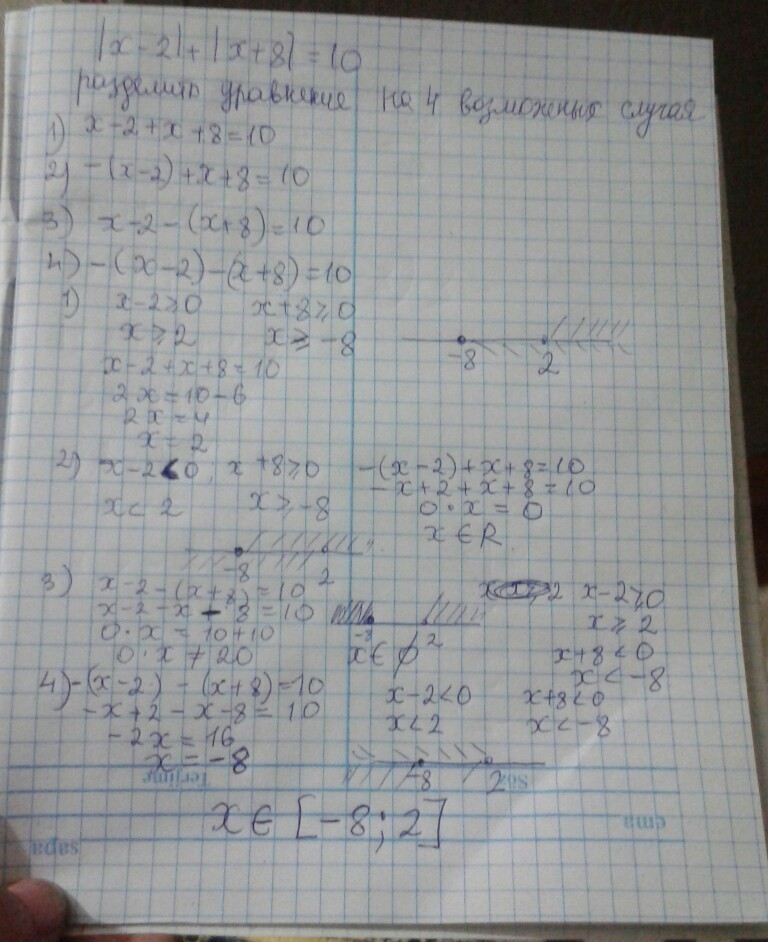 |x-2|+|x+8|=10
разделить уравнение на 4 возможных случая
1) x-2+x+8=10
2) -(x-2)+x+8=10
3) x-2-(x+8)=10
4) -(x-2)-(x+8)=10
1) x-2≥0 x+8≥0
x≥2 x≥-8
-8 2
x-2+x+8=10
2x=10-6
2x=4
x=2
2) x-2<0, x+8≥0 -(x-2)+x+8=10
x<2 x≥-8 -x+2+x+8=10
0·x=0
x∈R
-8 2
3) x-2-(x+8)=10 x-2≥0
x-2-x-8=10 x≥2
0·x=10+10 -8 2 x+8<0
0·x≠20 x∈∅ x<-8
4) -(x-2)-(x+8)=10 x-2<0 x+8<0
-x+2-x-8=10 x<2 x<-8
-2x=16
x=-8
-8 2
Terjime Söz
x∈[-8;2]
ema
sapa